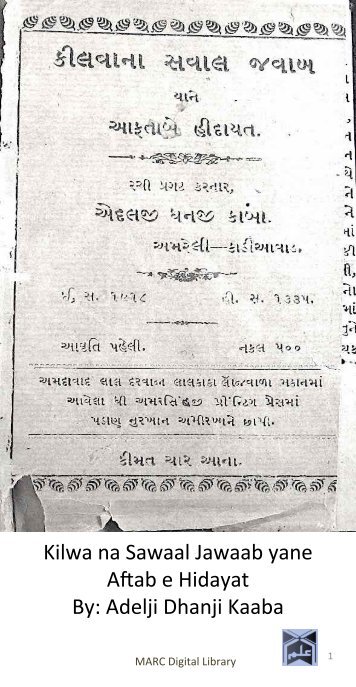 કીલવાના સવાલ જવાબ
યાને
આફતાબે હીદાયત.
રચી પ્રગટ કરનાર,
એદલજી ધનજી કાબા.
અમરેલી—કાઠીઆવાડ.
ઈ. સ. ૧૯૧૮ હી. સ. ૧૩૩૫.
આવૃતિ પહેલી. નકલ ૫૦૦
અમદાવાદ લાલ દરવાજા લાલકાકા લૉજવાળા મકાનમાં
આવેલા ધી અમરસિંહજી પ્રીન્ટિંગ પ્રેસમાં
પઠાણ નુરખાન અમીરખાને છાપી.
કીમત ચાર આના.
Kilwa na Sawaal Jawaab yane
Aftab e Hidayat
By: Adelji Dhanji Kaaba
MARC Digital Library
علم
1